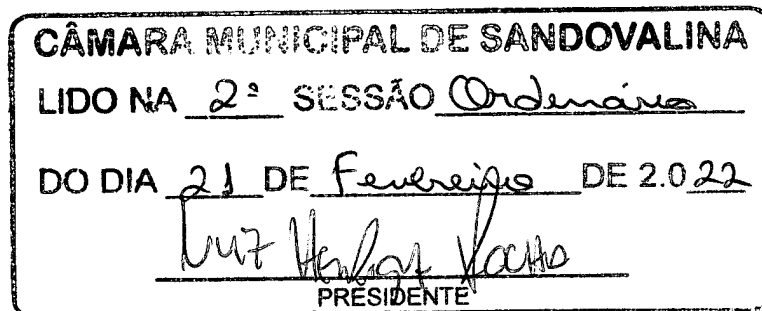 CÂMARA MUNICIPAL DE SANDOVALINA
LIDO NA 2ª SESSÃO Ordenária
DO DIA 21 DE Fevereiro DE 2.022
PRESIDENTE